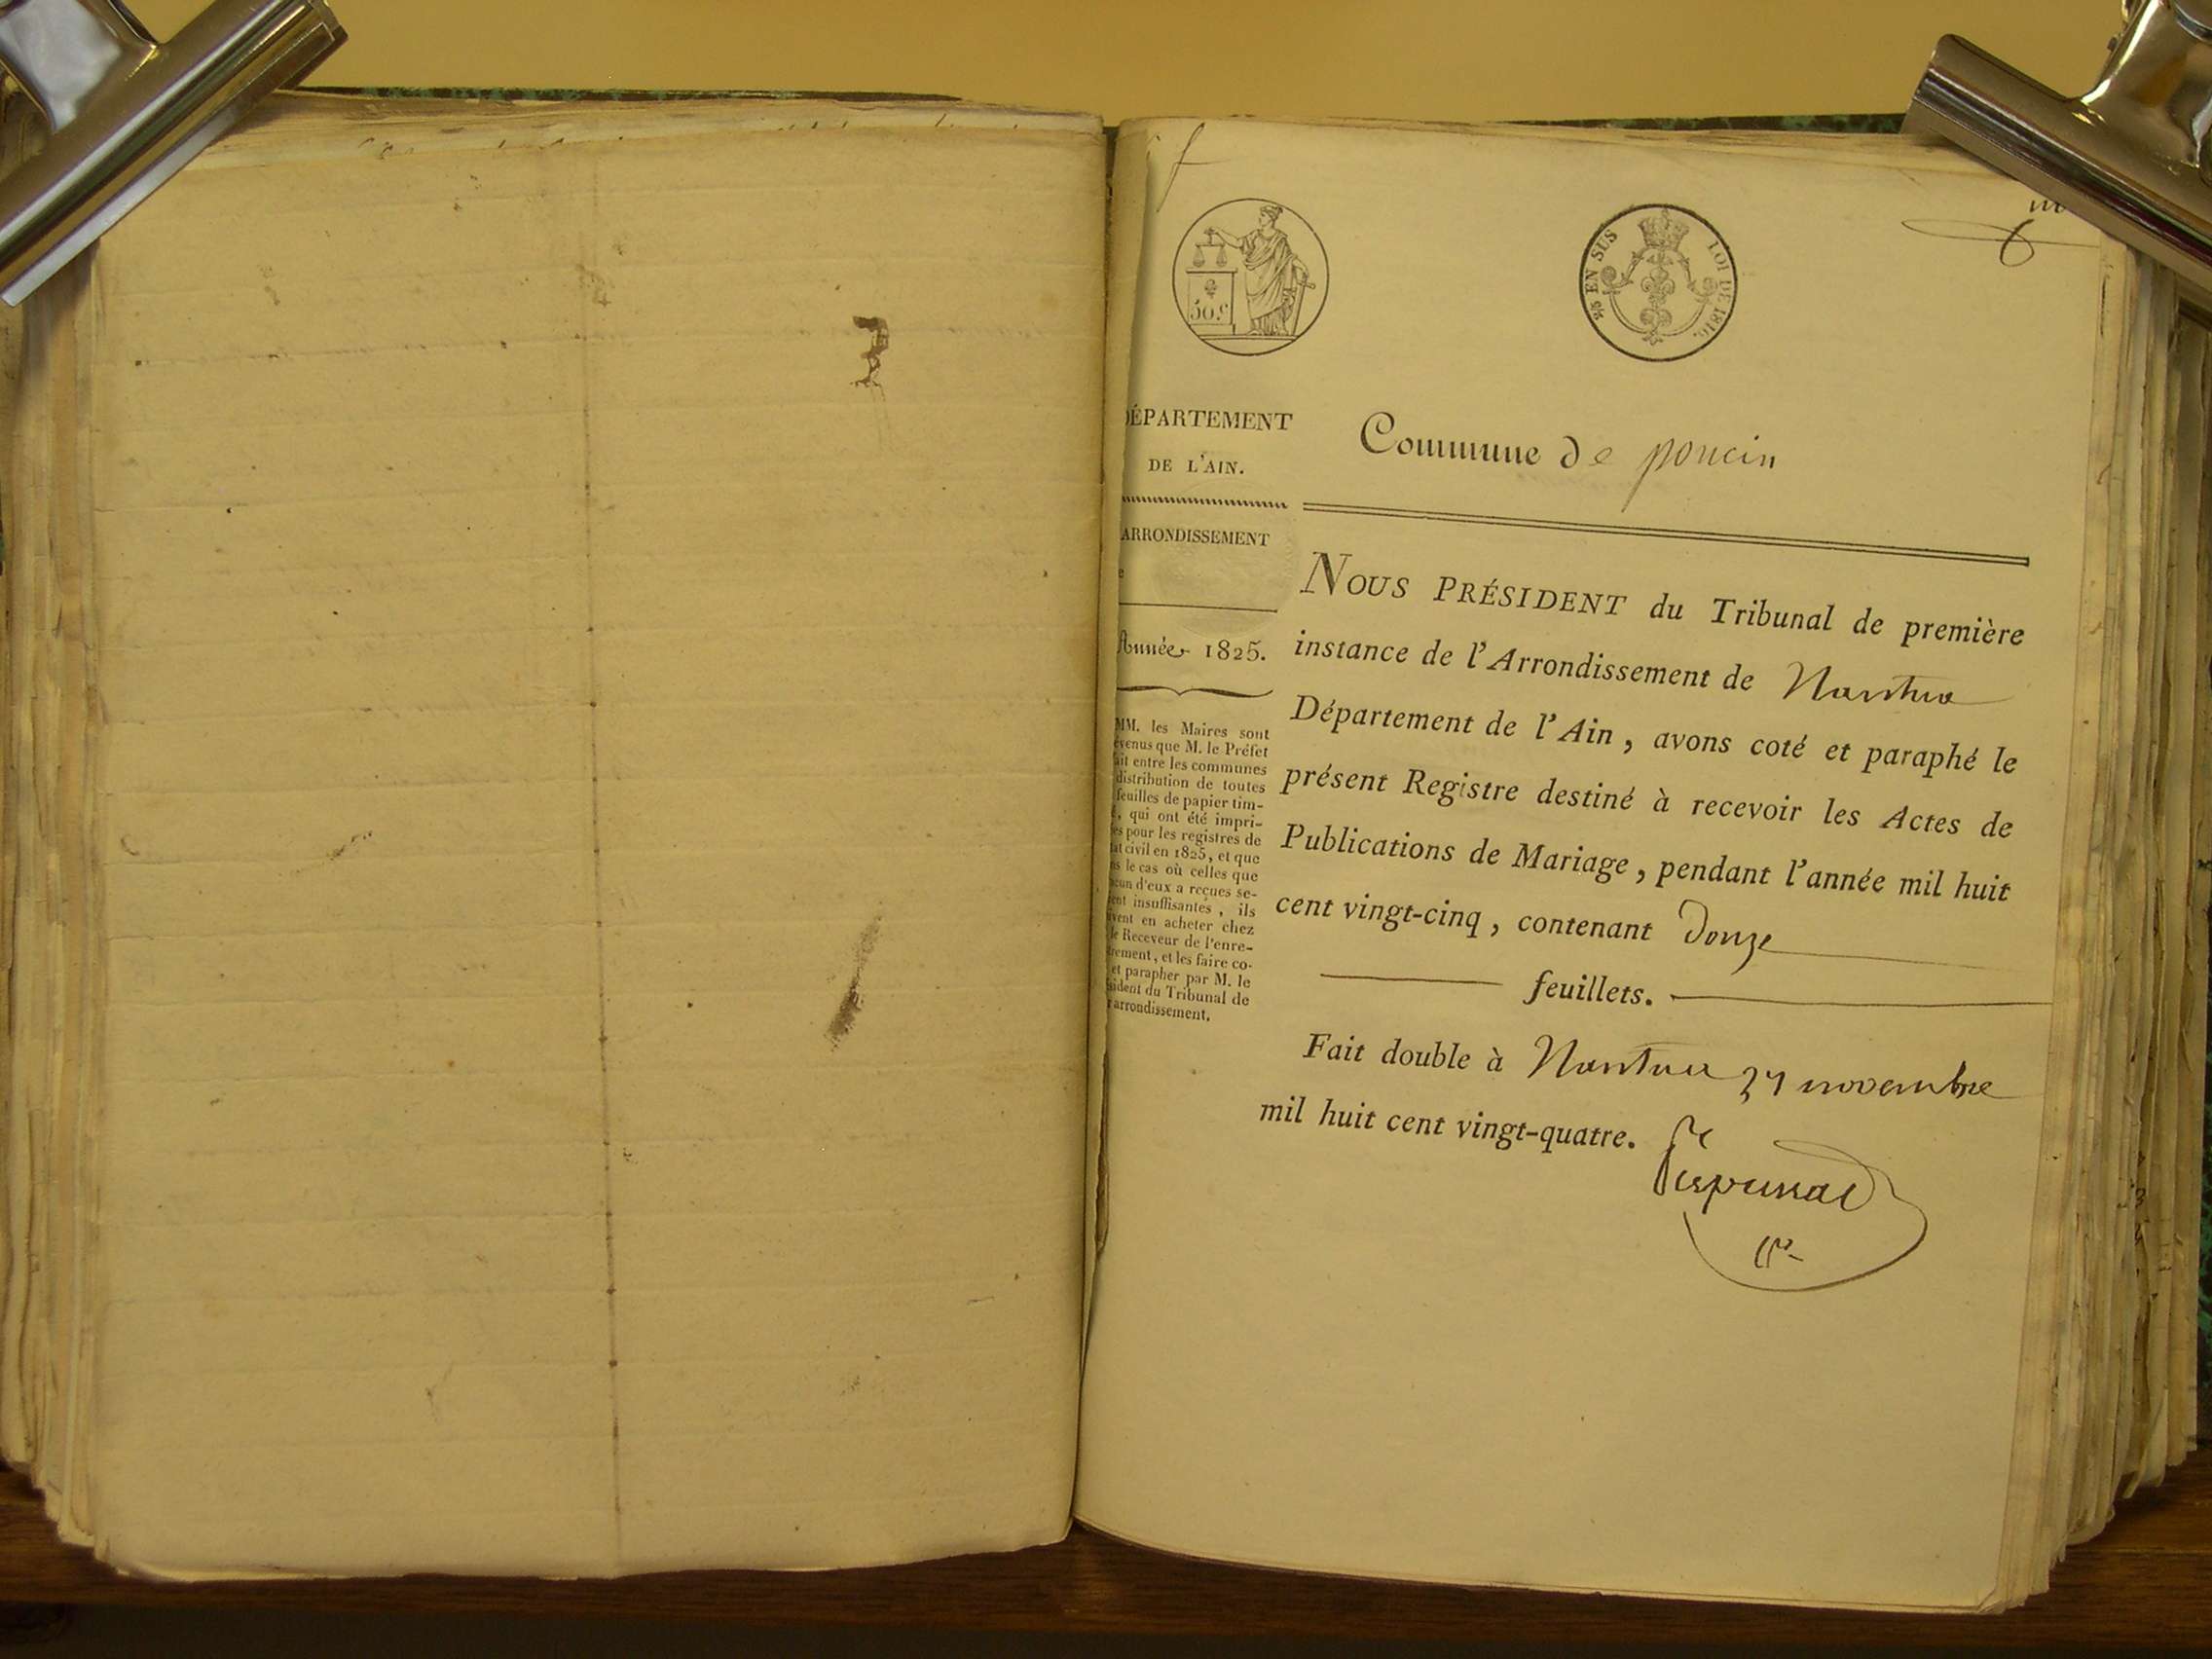 50.c
2/10 EN SUS LOI DE 1816.
DÉPARTEMENT
DE L'AIN.
Commune de poncin
ARRONDISSEMENT
e
Année 1825.
MM. les Maires sont
evenus que M. le Préfet
ait entre les communes
distribution de toutes
feuilles de papier tim-
, qui ont été impri-
es pour les registres de
at civil en 1825, et que
ns le cas où celles que
cun d'eux a reçues se-
ent insuffisantes, ils
ivent en acheter chez
le Receveur de l'enre-
trement, et les faire co-
et parapher par M. le
sident du Tribunal de
r arrondissement.
NOUS PRÉSIDENT du Tribunal de première
instance de l'Arrondissement de Nantua
Département de l'Ain, avons coté et paraphé le
présent Registre destiné à recevoir les Actes de
Publications de Mariage, pendant l'année mil huit
cent vingt-cinq, contenant Douze
feuillets.
Fait double à Nantua 27 novembre
mil huit cent vingt-quatre.